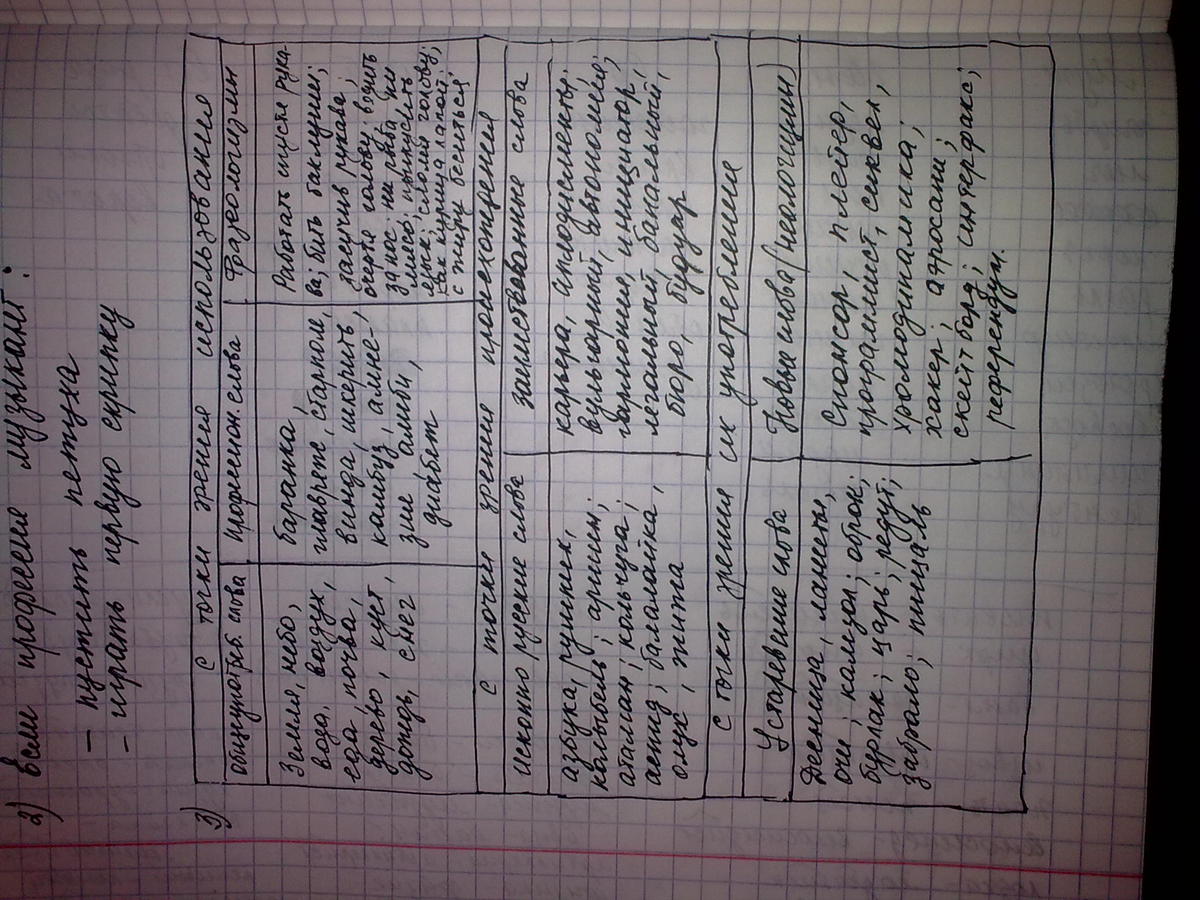 2) всем професее музыкант:
– пустить петуха
– играть первую скрипку
3)
С точки зрения использования
общеупотреб. слова
Професион. слова
Фразеологизмы
Земля, небо,
вода, воздух,
еда, почва,
дерево, куст,
дождь, снег
баранка,
главреж, старпом,
винда, шкерить,
камбуз, амне-
зия, алиби,
диабет
Работать спустя рука
ва; бить баклуши;
засучив рукава;
очертя голову; водить
за нос; ни рыба ни
мясо; прикусить
язык; сломя голову;
как курица лапой;
с жиру беситься
С точки зрения происхождения
исконо русские слова
заимствованные слова
азбука, рушник,
колыбель; аршин;
атаман; кольчуга;
аспид; балалайка,
опук, липа
карьера, аплодисменты,
вульгарный, автономия,
гармония, инициатор,
легальный, банальный,
бюро, будуар
С точки зрения их употребления
Устаревшие слова
Новые слова (неологизмы)
Десница, ланиты,
очи; камзол; оброк;
бурлак; царь; редут;
забрало; пищаль
Спонсор, плейер,
программист, сиквел,
хромодинамика;
хакер; аэросани;
скейтборд; интерфакс;
референдум.